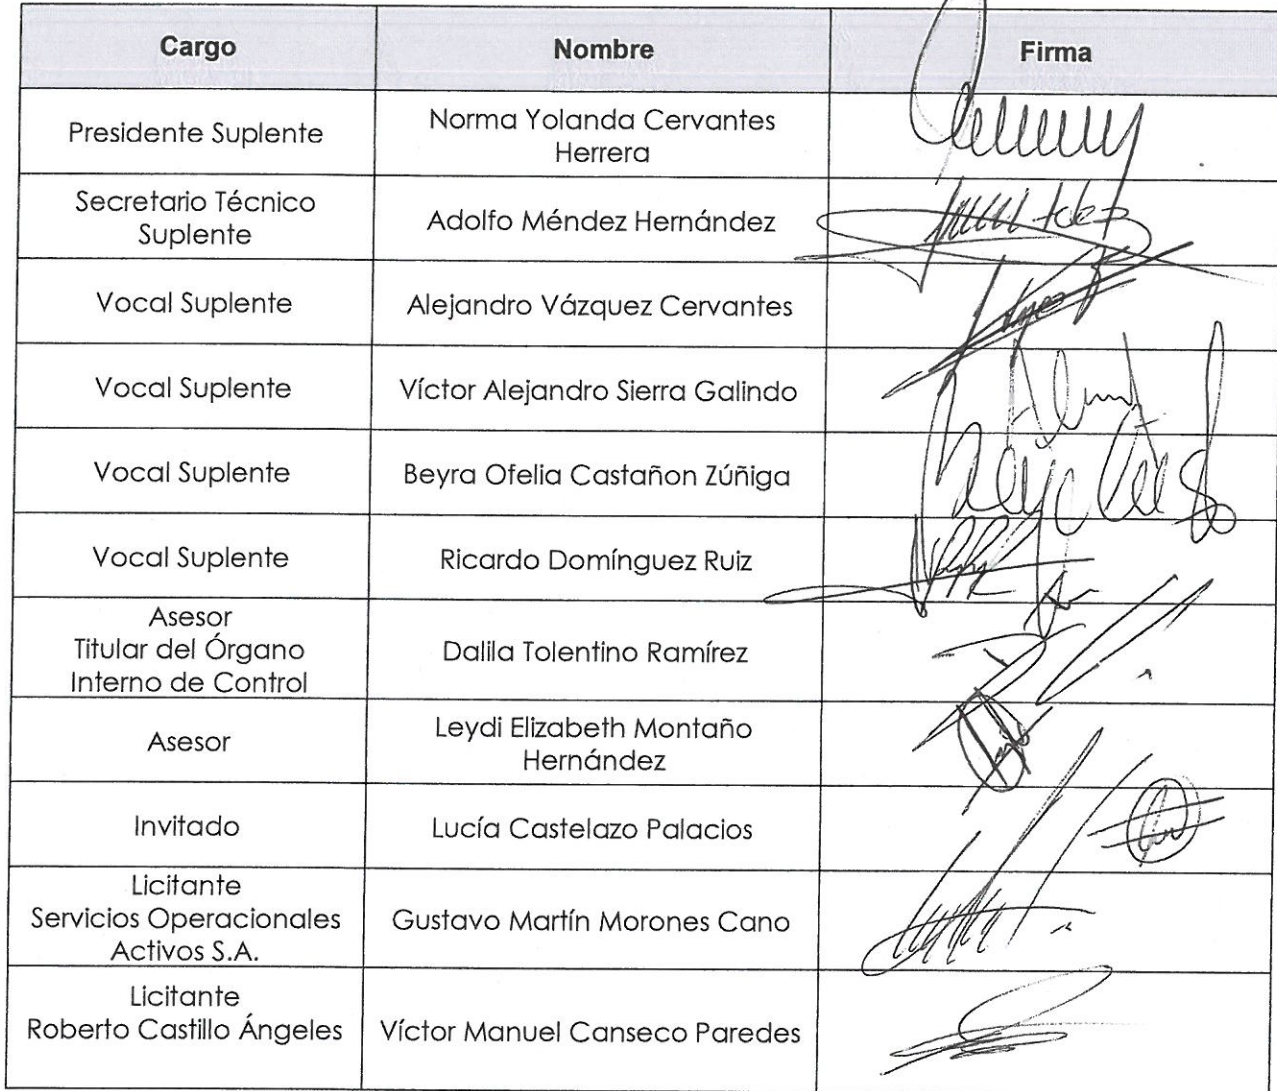 Cargo Nombre Firma
Presidente Suplente
Norma Yolanda Cervantes
Herrera
Secretario Técnico
Suplente
Adolfo Méndez Hernández
Vocal Suplente
Alejandro Vázquez Cervantes
Vocal Suplente
Víctor Alejandro Sierra Galindo
Vocal Suplente
Beyra Ofelia Castañon Zúñiga
Vocal Suplente
Ricardo Domínguez Ruiz
Asesor
Titular del Órgano
Interno de Control
Dalila Tolentino Ramírez
Asesor
Leydi Elizabeth Montaño
Hernández
Invitado
Lucía Castelazo Palacios
Licitante
Servicios Operacionales
Activos S.A.
Gustavo Martín Morones Cano
Licitante
Roberto Castillo Ángeles
Víctor Manuel Canseco Paredes